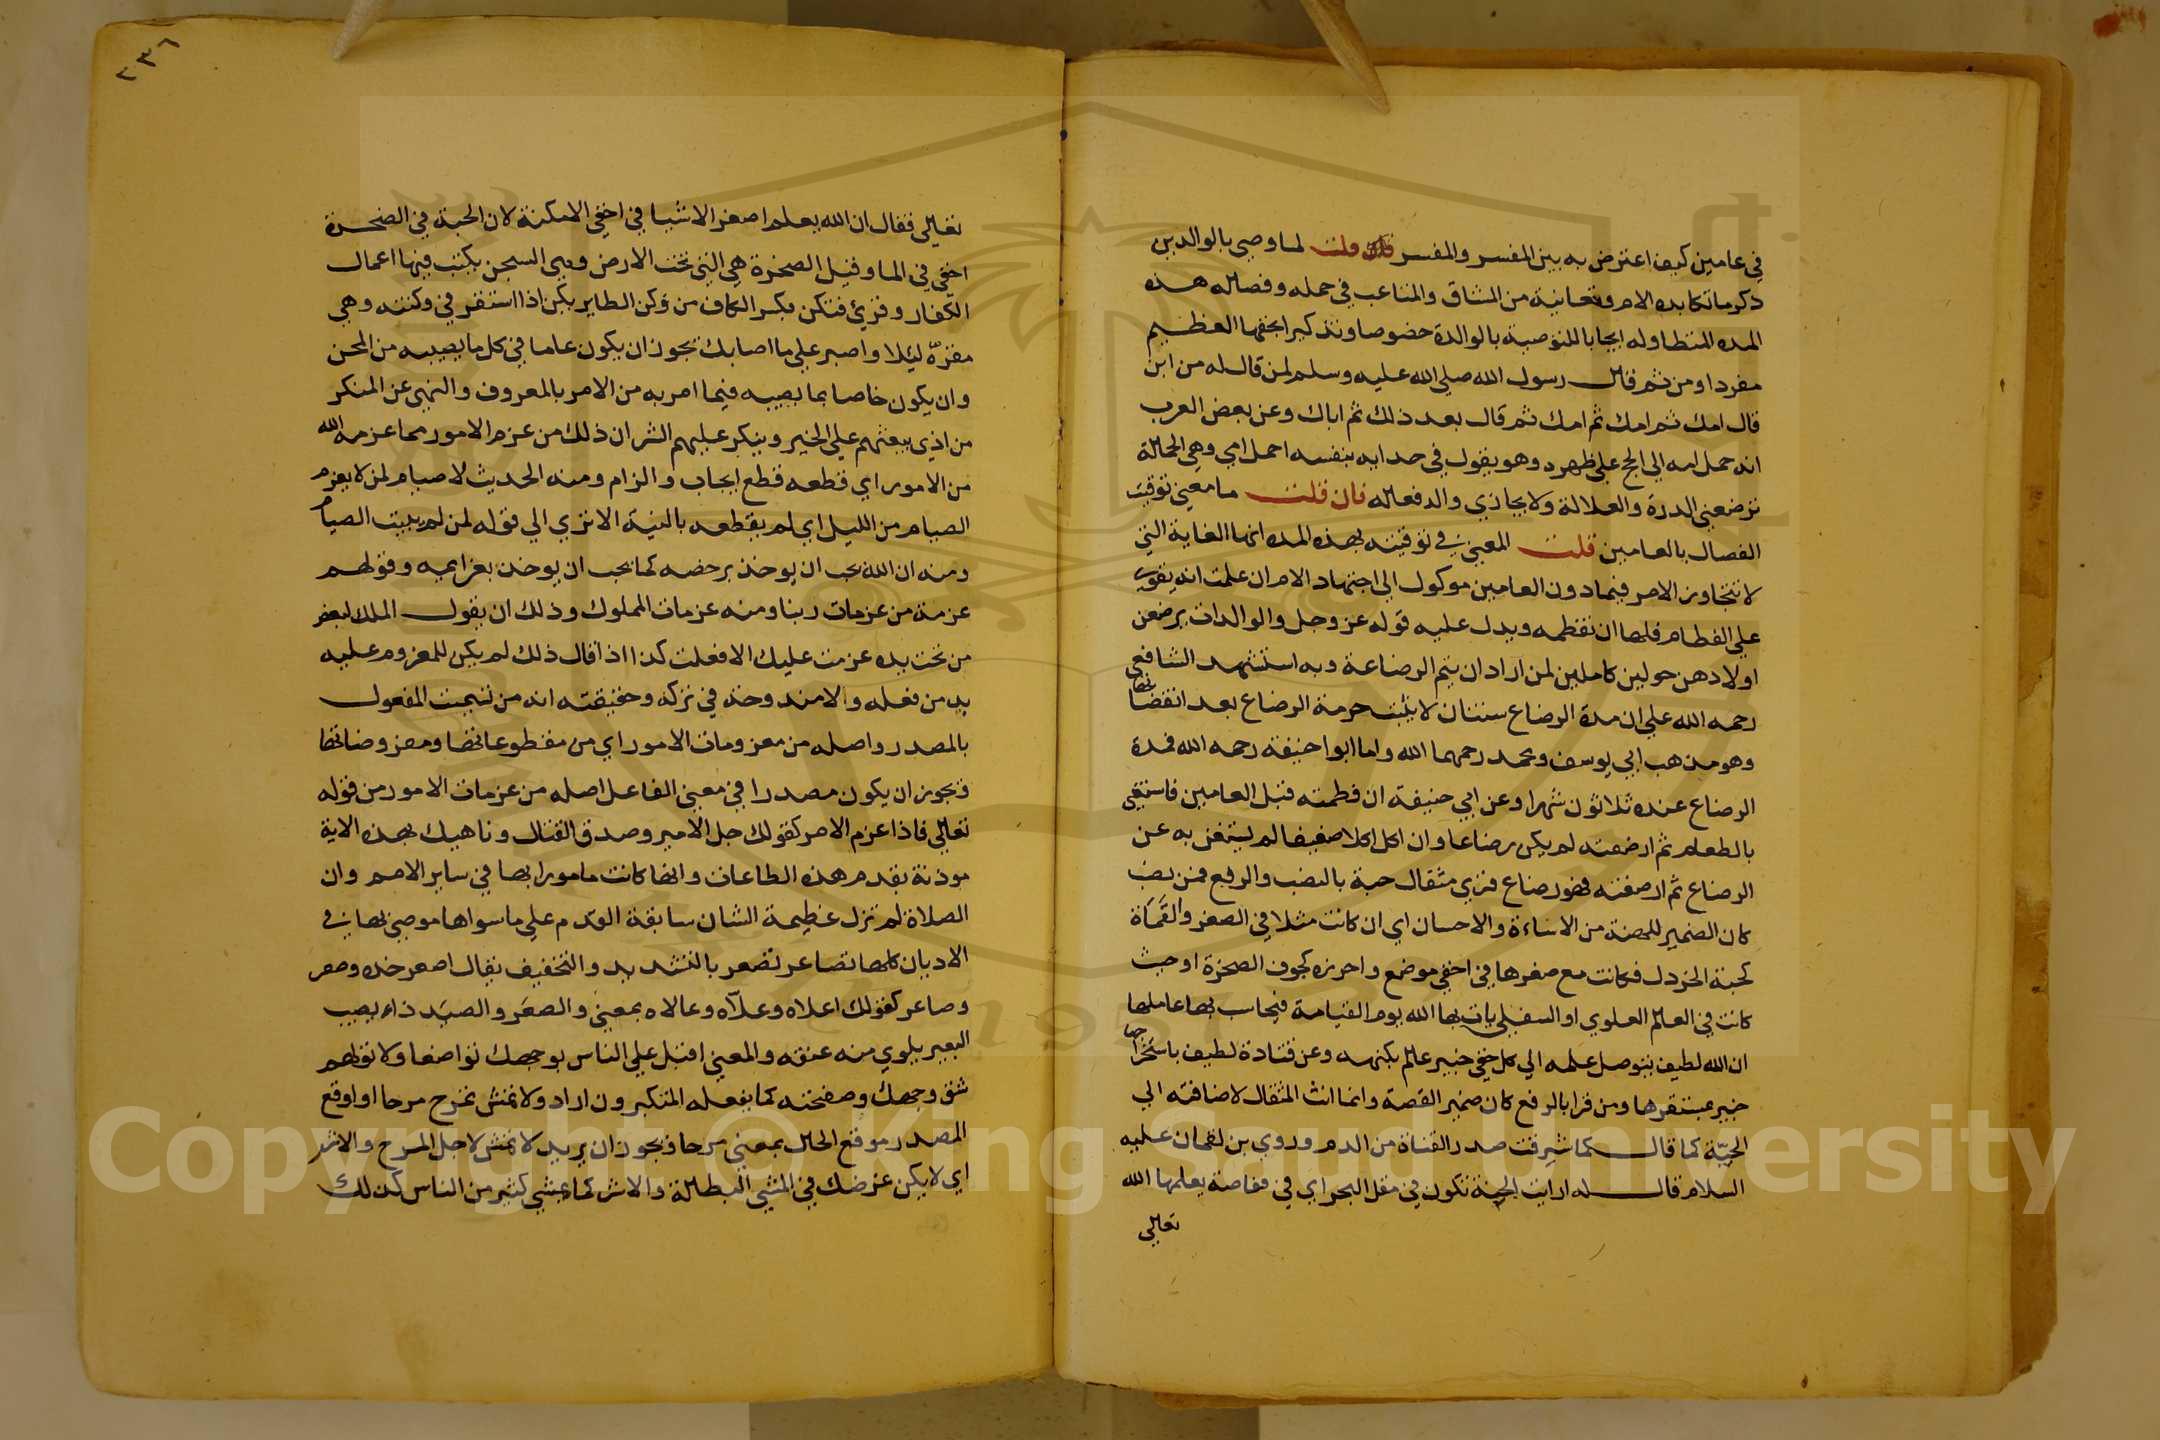 في عامين كيف اعترض به بين المفسر والمفسر قلت لما وصي بالوالدين
ذكر ما تكابده الام وتعانيه من المشاق والمتاعب في حمله وفصاله هذه
المده المتطاوله ايجابا للتوصية بالوالدة خصوصا وتذكيرا بحقها العظيم
مفردا ومن ثم قال رسول الله صلي الله عليه وسلم لمن قال له من ابر
قال امك ثم امك ثم امك ثم قال بعد ذلك ثم اباك وعن بعض العرب
انه حمل امه الي الحج علي ظهره وهو يقول في حدايه بنفسه احمل امي وهي الحمالة
ترضعني الدرة والعلالة ولا يجازي والد فعاله فان قلت ما معني توقيت
الفصال بالعامين قلت المعني في توقيته بهذه المده انها الغاية التي
لا تتجاوز الامر فيما دون العامين موكول الي اجتهاد الام ان علمت انه يقوي
علي الفطام فلها ان تفطمه ويدل عليه قوله عز وجل والوالدات يرضعن
اولادهن حولين كاملين لمن اراد ان يتم الرضاعة وبه استشهد الشافعي
رحمه الله علي ان مدة الرضاع سنتان لا يثبت حرمة الرضاع بعد انقضائها
وهو مذهب ابي يوسف ومحمد رحمهما الله واما ابو حنيفة رحمه الله فمدة
الرضاع عنده ثلاثون شهرا وعن ابي حنيفة ان فطمته قبل العامين فاستغني
بالطعام ثم ارضعته لم يكن رضاعا وان اكل اكلا ضعيفا لم يستغن به عن
الرضاع ثم ارضعته فهو رضاع قري مثقال حبة بالنصب والرفع فمن نصب
كان الضمير للهنة من الاساءة والاحسان اي ان كانت مثلا في الصغر والقماة
كحبة الخردل فكانت مع صغرها في اخفي موضع واحرزه كجوف الصخرة او حيث
كانت في العالم العلوي او السفلي يات بها الله يوم القيامة فيحاسب بها عاملها
ان الله لطيف يتوصل علمه الي كل خفي خبير عالم بكنهه وعن قتادة لطيف باستخراجها
خبير بمستقرها ومن قرا بالرفع كان ضمير القصة وانما انث المثقال لاضافته الي
الحبة كما قال كما شرقت صدر القناة من الدم وروي بن لقمان عليه
السلام قال له ارايت الحبة تكون في مقل البحر اي في مغاصة يعلمها الله
تعالي
٢٣٦
تعالي فقال ان الله يعلم اصغر الاشيا في اخفي الامكنة لان الحبة في الصخرة
اخفي في الما وقيل الصخرة هي التي تحت الارض وهي السجن يكتب فيها اعمال
الكفار وقري فتكن بكسر الكاف من وكن الطاير يكن اذا استقر في وكنته وهي
مقره ليلا واصبر علي ما اصابك يجوز ان يكون عاما في كل ما يصيبه من المحن
وان يكون خاصا بما يصيبه فيما امر به من الامر بالمعروف والنهي عن المنكر
من اذي يبعثهم علي الخير وينكر عليهم الشر ان ذلك من عزم الامور مما عزمه الله
من الامور اي قطعه قطع ايجاب والزام ومنه الحديث لا صيام لمن لا يعزم
الصيام من الليل اي لم يقطعه بالنية الا تري الي قوله لمن لم يبيت الصيام
ومنه ان الله يحب ان يوخذ برخصه كما يحب ان يوخذ بعزايمه وقولهم
عزمة من عزمات ربنا ومنه عزمات الملوك وذلك ان يقول الملك لبعض
من تحت يده عزمت عليك الا فعلت كذا اذا قال ذلك لم يكن للمعزوم عليه
بد من فعله ولا مندوحة في تركه وحقيقته انه من تسمية المفعول
بالمصدر واصله من معزومات الامور اي من مقطوعاتها ومفروضاتها
ويجوز ان يكون مصدرا في معني الفاعل اصله من عزمات الامور من قوله
تعالي فاذا عزم الامر كقولك جد الامير وصدق القتال وناهيك بهذه الاية
موذنة بقدم هذه الطاعات وانها كانت مامورا بها في ساير الامم وان
الصلاة لم تزل عظيمة الشان سابقة القدم علي ما سواها موصي بها في
الاديان كلها تصاعر تصعر بالتشديد والتخفيف يقال اصعر خده وصعر
وصاعر كقولك اعلاه وعلاه وعالاه بمعني والصعر والصيد داء يصيب
البعير يلوي منه عنقه والمعني اقبل علي الناس بوجهك تواضعا ولا تولهم
شق وجهك وصفحته كما يفعله المتكبرون اراد ولا تمش تمرح مرحا او اوقع
المصدر موقع الحال بمعني مرحا ويجوز ان يريد لا تمش لاجل المرح والاشر
اي لا يكن غرضك في المشي البطالة والاشر كما يمشي كثير من الناس كذلك
Copyright © King Saud University